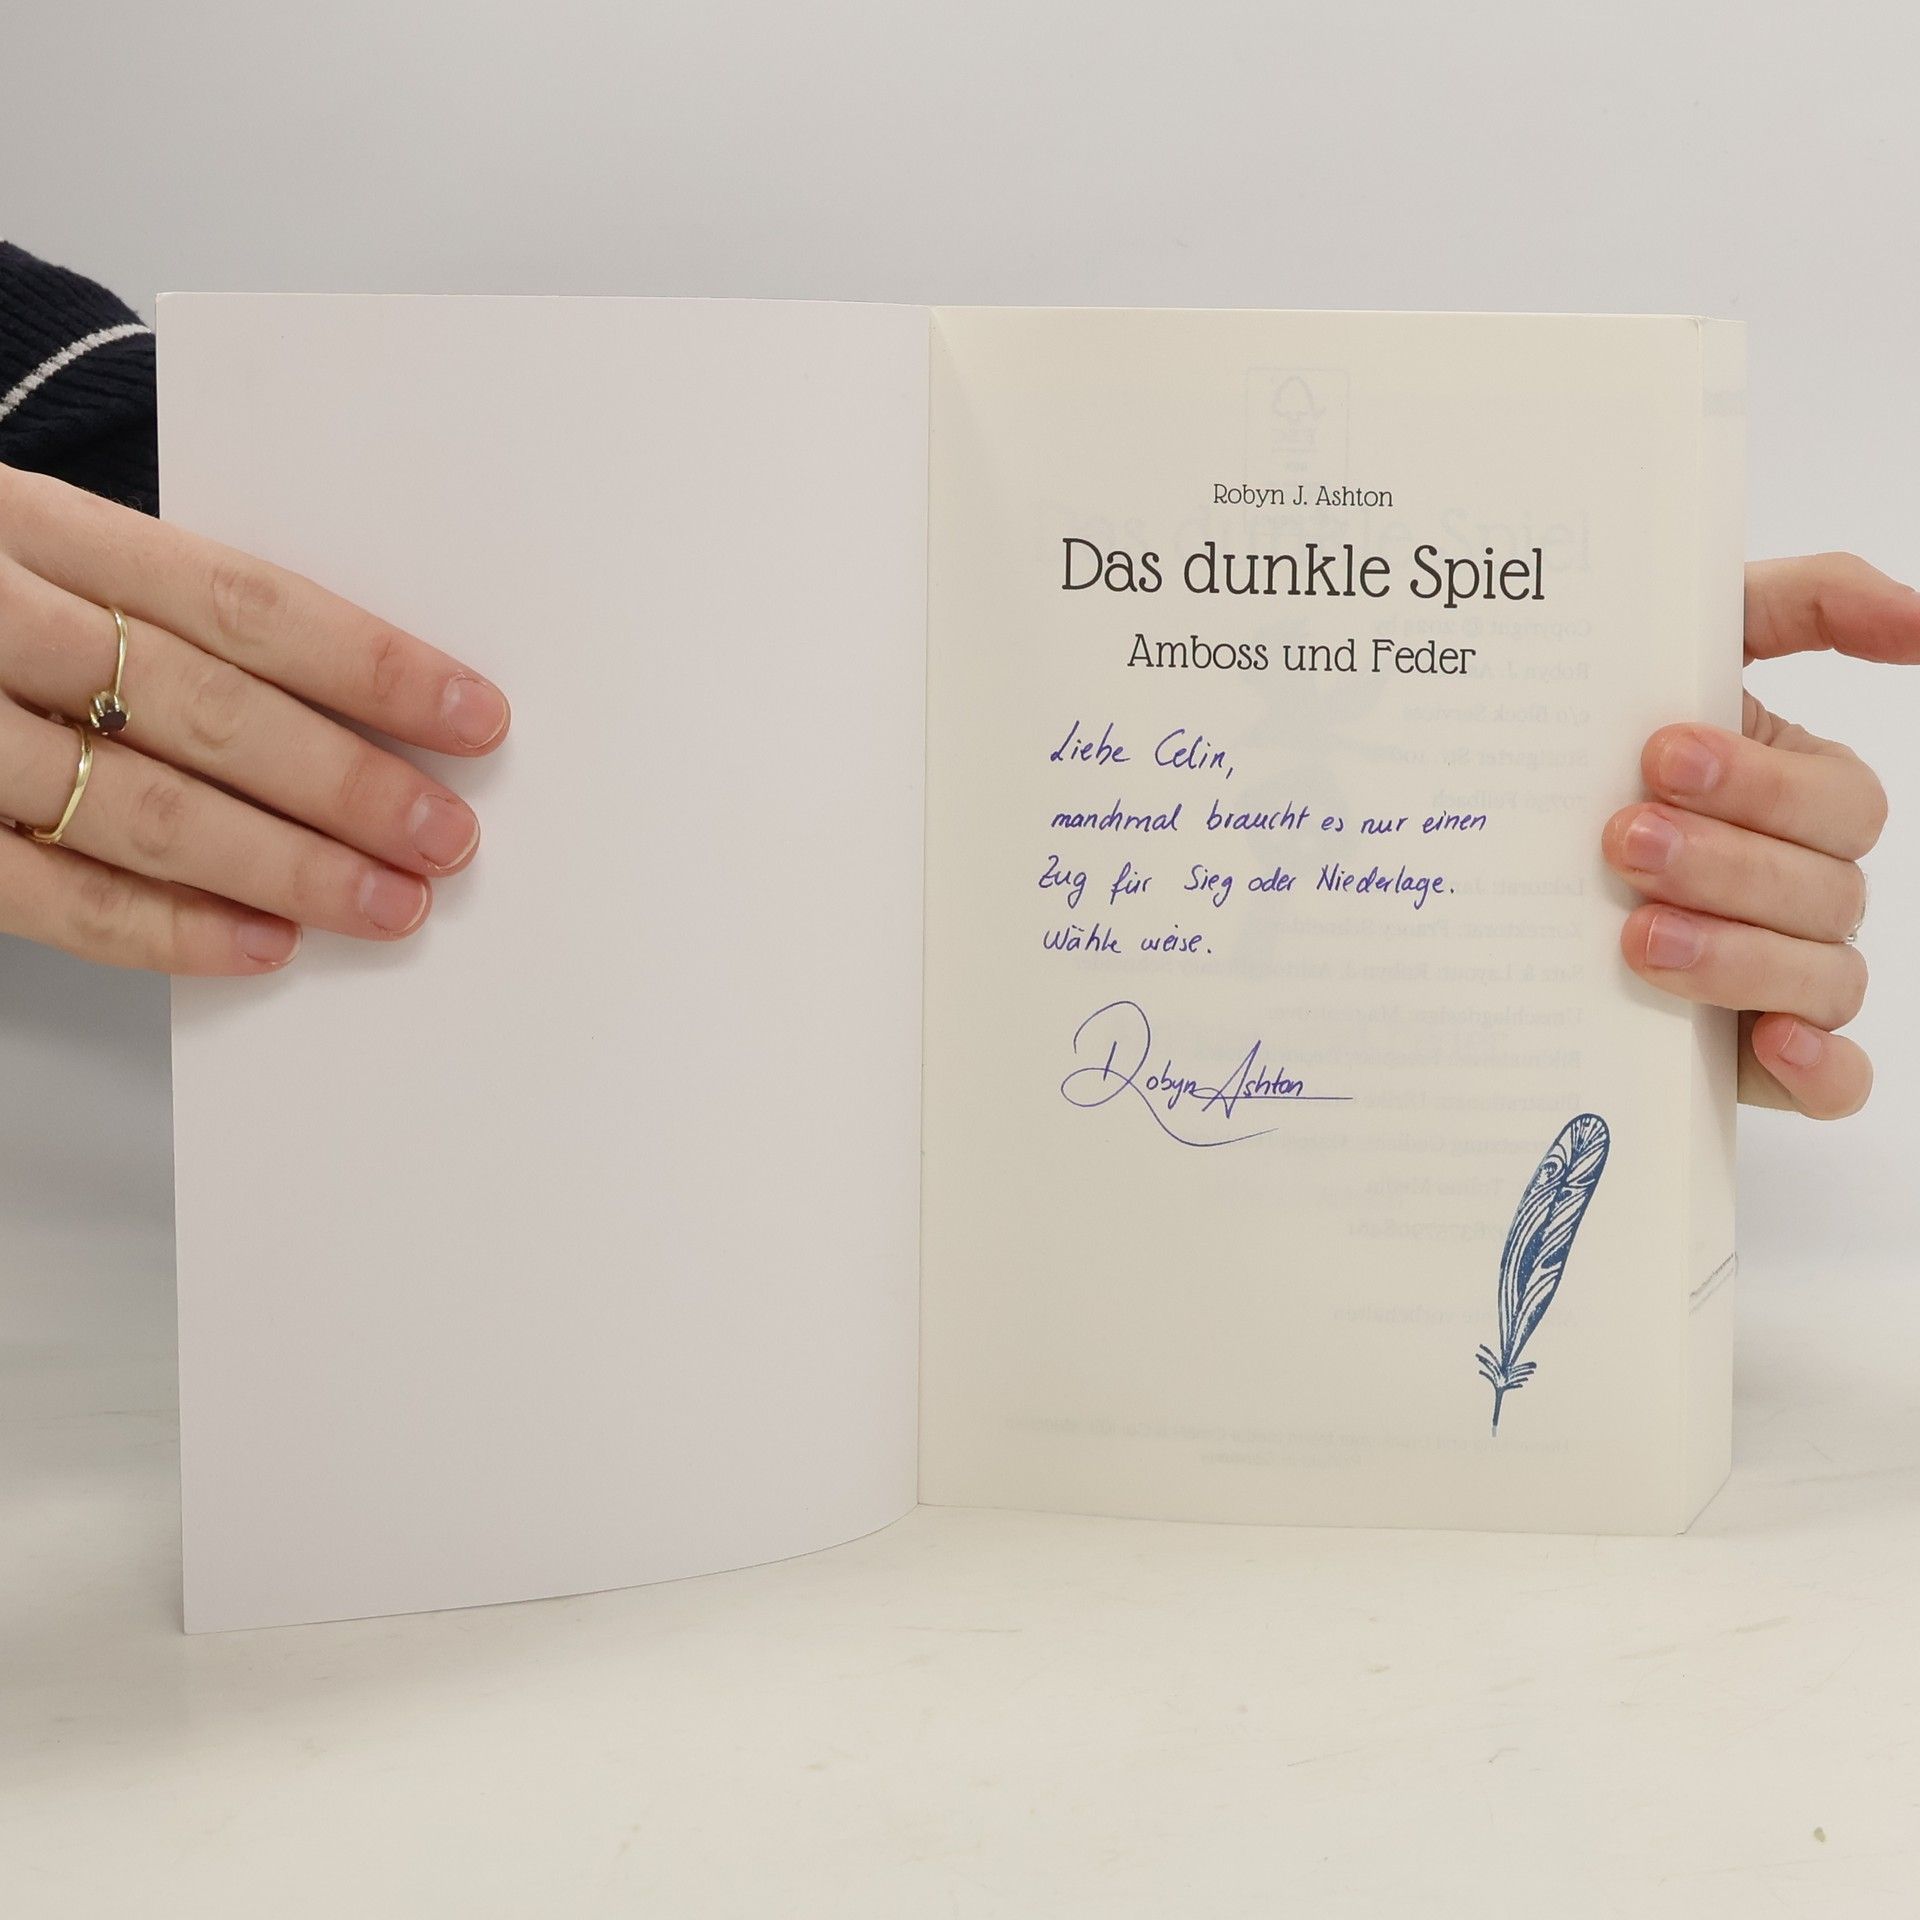 Robyn J. Ashton
Das dunkle Spiel
Amboss und Feder
Liebe Celin,
manchmal braucht es nur einen
Zug für Sieg oder Niederlage.
Wähle weise.
Robyn Ashton